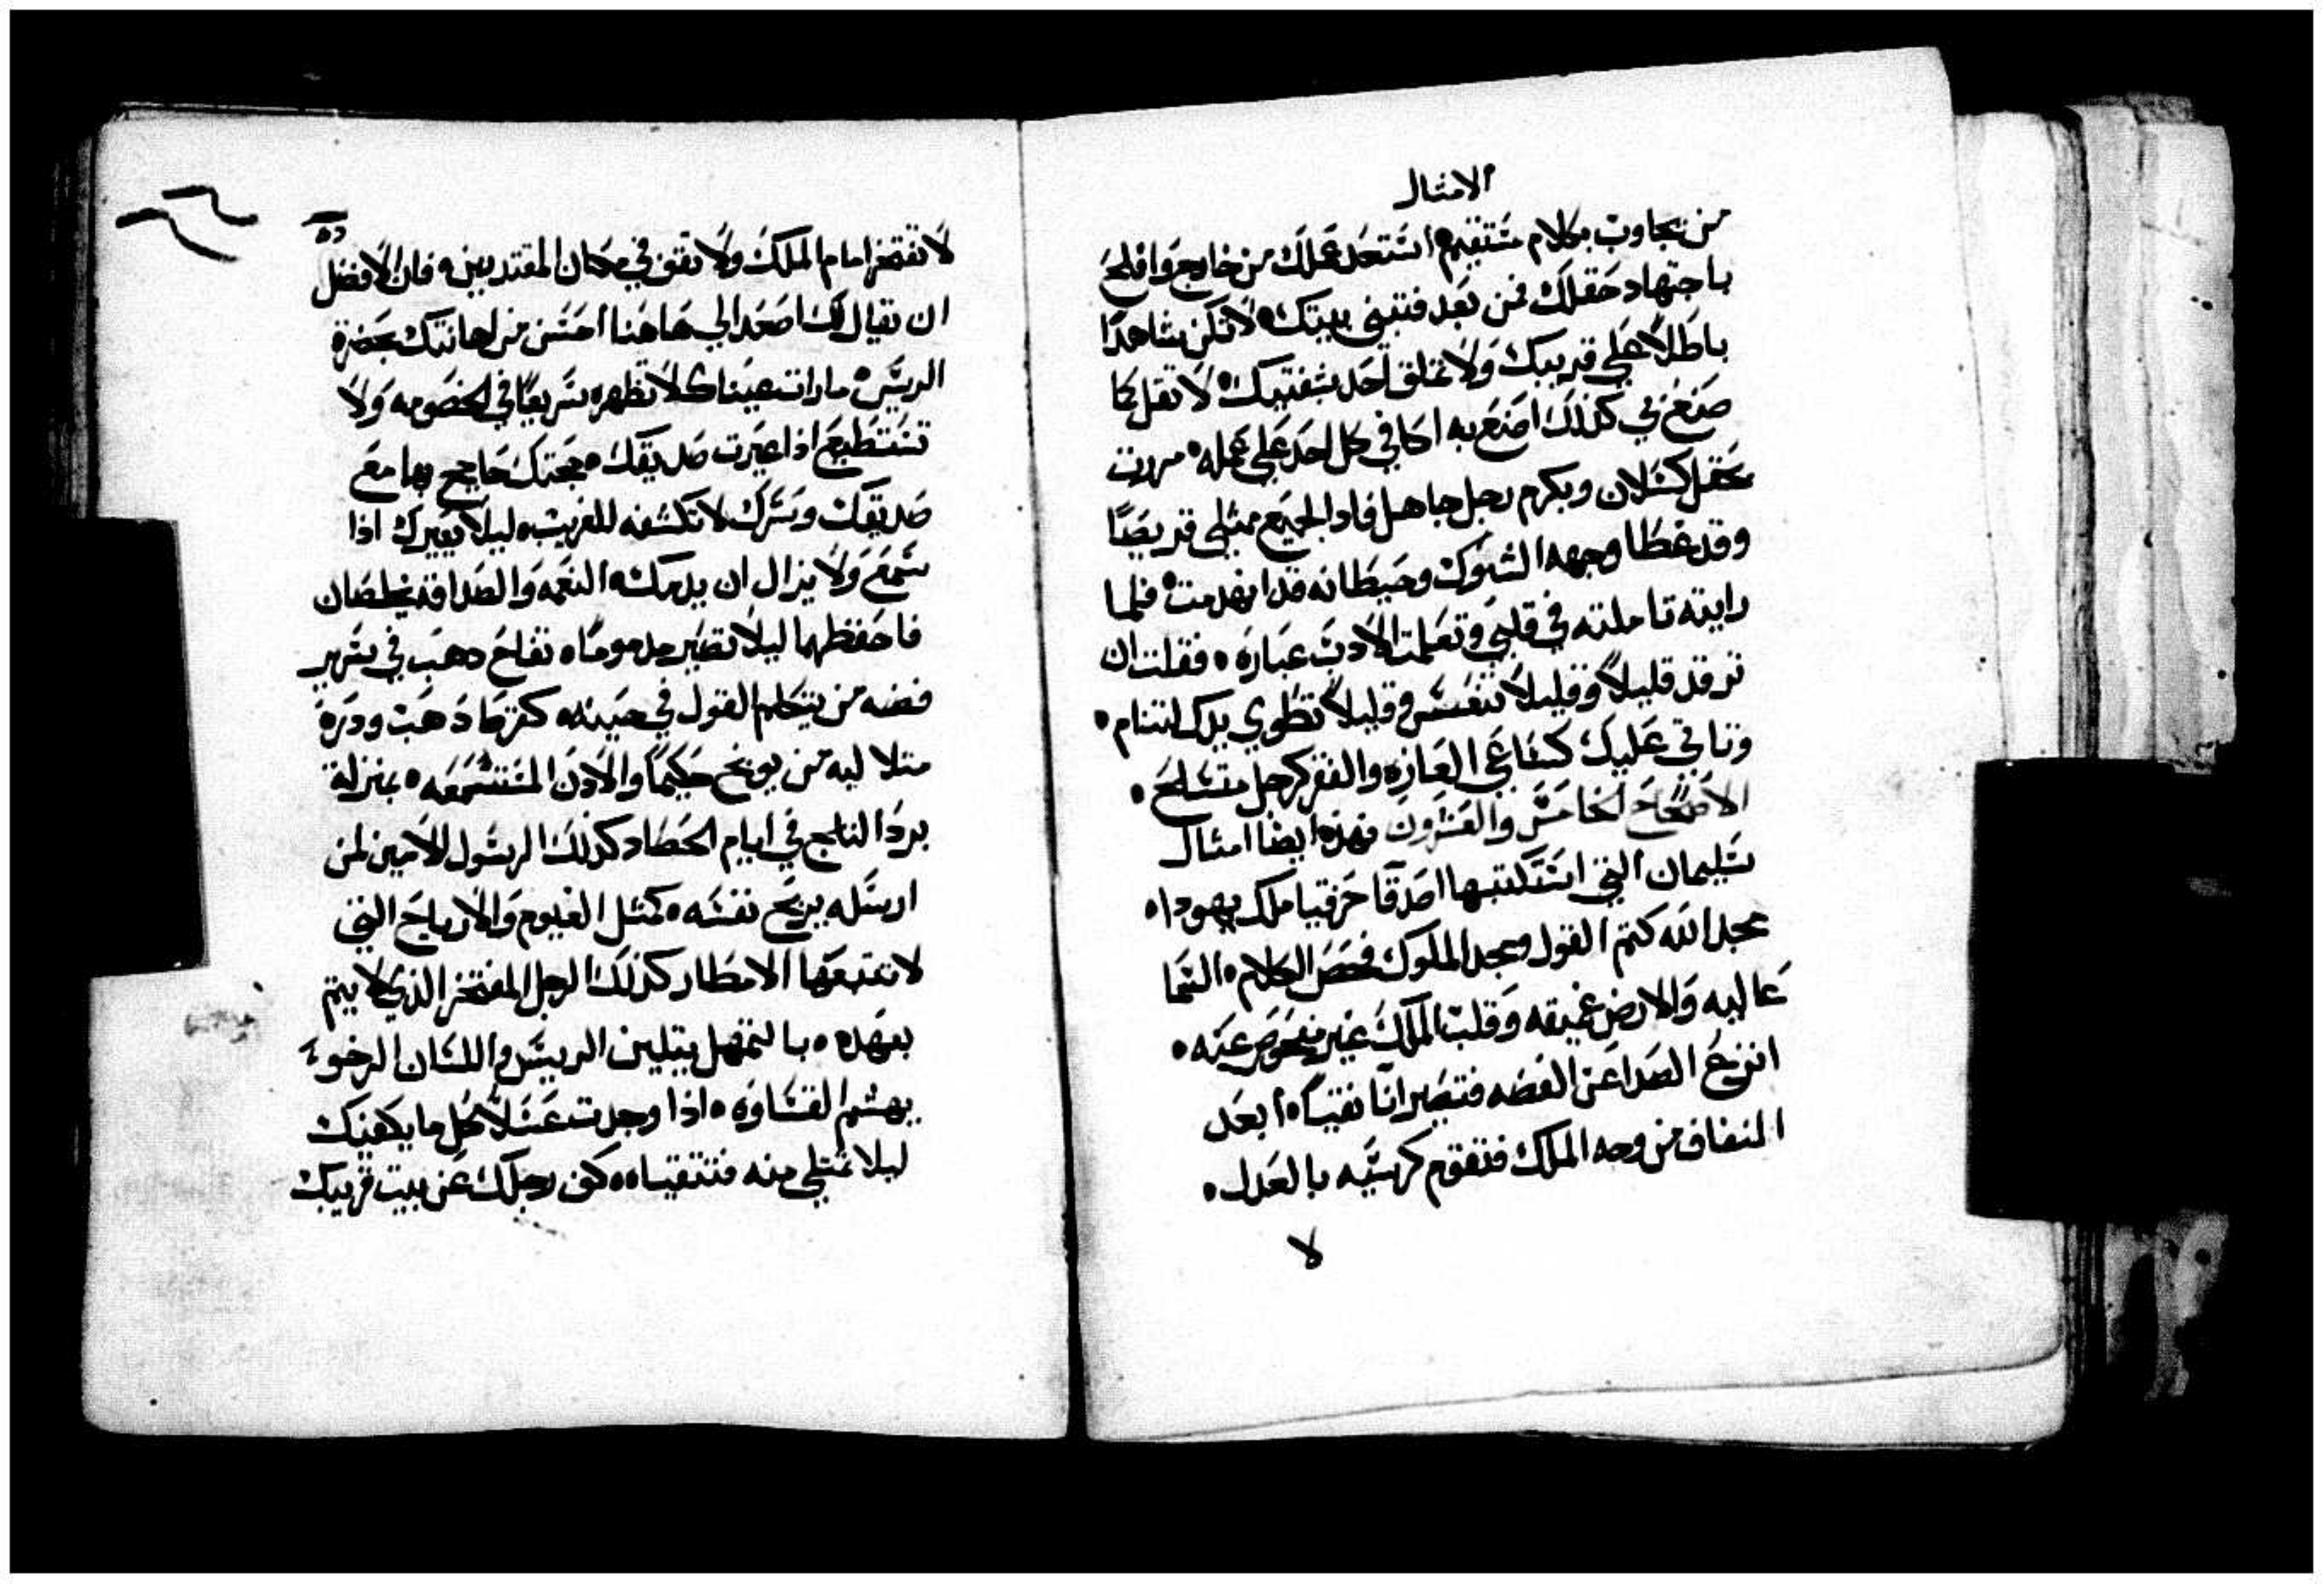 الامثال
من تجاوب بكلام مستقيم استعد عملك من خارج وافلح
باجتهاد حقلك فمن بعد فتبني بيتك لا تكن شاهدًا
باطلًا علي قريبك ولا تملق احد بشفتيك لا تقل كما
صنع بي كذلك اصنع به اكافي كل احد علي عمله مررت
بحقل كسلان وبكرم رجل جاهل فاذا الجميع ممتلي قريصًا
وقد غطا وجهه الشوك وحيطانه قد انهدمت فلما
رايته تاملته في قلبي وتعلمت الادب عباره فقلت ان
ترقد قليلًا وقليلًا تنعس وقليلًا تطوي يدك لتنام
وتاتي عليك كساعي الفازه والفقر كرجل متسلح
الاصحاح الخامس والعشرون فهذه ايضا امثال
سليمان التي استكتبها اصدقا حزقيا ملك يهودا
مجد الله كتم القول ومجد الملوك فحص الكلام السما
عاليه والارض عميقه وقلب الملك غير مفحوص عنه
انزع الصدا عن الفضه فتصير انآ نقيًا ابعد
النفاق من وجه الملك فتقوم كرسيه بالعدل
لا
لا تفتخر امام الملك ولا تقف في مكان المقتدرين فان الافضل
ان تقال لك اصعد الي هاهنا احسن من اهانتك بحضرة
الريس ما راته عيناك لا تظهره سريعًا في الخصومه ولا
تستطيع اذا عيرت صديقك حجتك حاجج بها مع
صديقك وسرك لا تكشفه للغريب ليلا يعيرك اذا
سمع ولا يزال ان يذمك النعمه والصداقه يخلصان
فاحفظهما ليلا تصير مذمومًا تفاح دهب في سرير
فضه من يتكلم القول في حينه كقرط دهب ودره
متلاليه من يوبخ حكيمًا والادن المستسمعه بمنزلة
برد الثلج في ايام الحصاد كذلك الرسول الامين لمن
ارسله يريح نفسه كمثل الغيوم والارياح التي
لا تتبعها الامطار كذلك الرجل المفتخر الذي لا يتم
بعهده بالتمهل يتلين الريس واللسان الرخو
يهشم القساوه اذا وجدت عسلًا كل ما يكفيك
ليلا تمتلي منه فتتقياه كف رجلك عن بيت قريبك